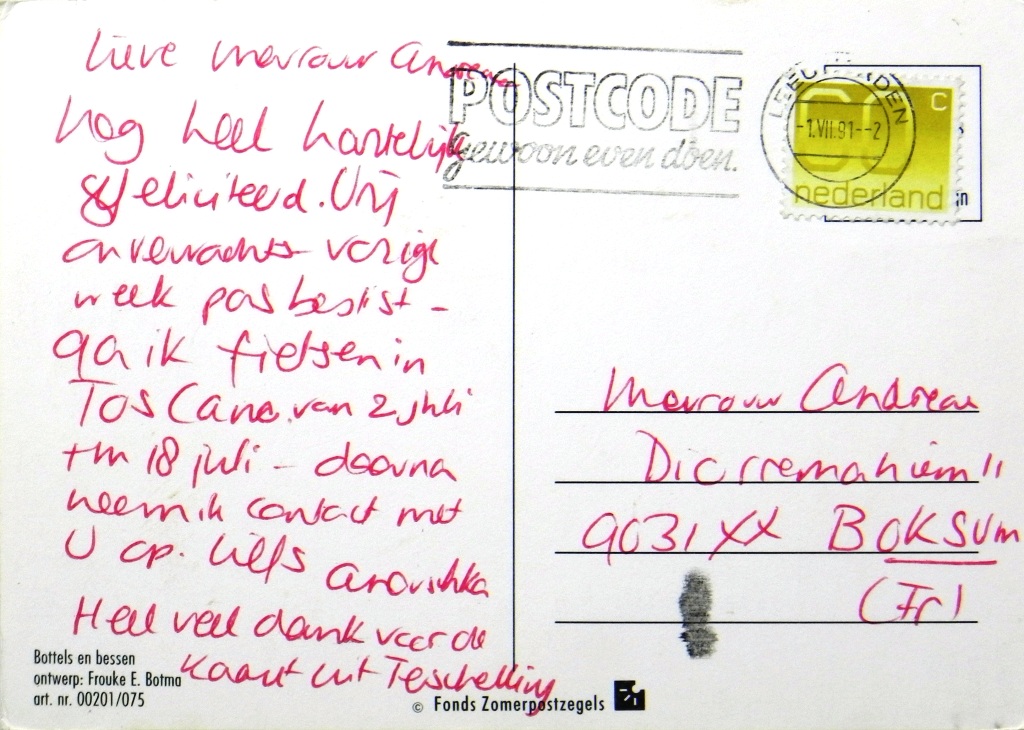 Lieve mevrouw Andreae
Nog heel hartelijk
gefeliciteerd. Vrij
onverwachts - vorige
week pas beslist -
ga ik fietsen in
Toscane. van 2 juli
t/m 18 juli - daarna
neem ik contact met
U op. Liefs Anoushka
Heel veel dank voor de
kaart uit Terschelling
POSTCODE
gewoon even doen.
LEEUWARDEN
-1.VII.91--2
C
60
nederland
Mevrouw Andreae
11
9031 XX BOKSUM
(Fr)
Bottels en bessen
ontwerp: Frouke E. Botma
art. nr. 00201/075
© Fonds Zomerpostzegels